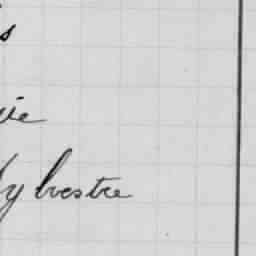 s
ie
Sylvestre